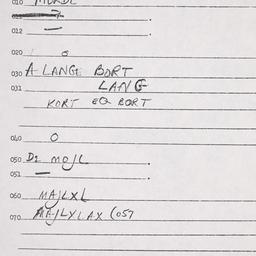 010
012 —
020 0
030 A LANGE BORT
031 LANG
KORT EG BORT
040 0
050 D1 MOJL
051 —
060 MAJLXL
070 MAJLYLAX (057